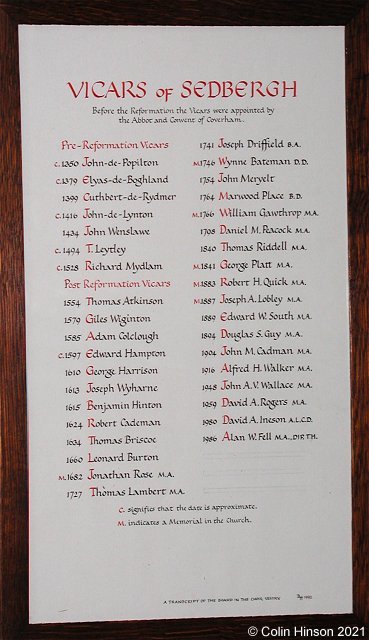 VICARS of SEDBERGH
Before the Reformation the Vicars were appointed by
the Abbot and Convent of Coverham.
Pre-Reformation Vicars
c.1350 John-de-Popilton
c.1379 Elyas-de-Boghland
1399 Cuthbert-de-Rydmer
c.1416 John-de-Lynton
1434 John Wenslawe
c.1494 T. Leytley
c.1528 Richard Mydlam
Post Reformation Vicars
1554 Thomas Atkinson
1579 Giles Wiginton
1585 Adam Colclough
c.1597 Edward Hampton
1610 George Harrison
1613 Joseph Wyharne
1615 Benjamin Hinton
1624 Robert Cademan
1634 Thomas Briscoe
1660 Leonard Burton
M.1682 Jonathan Rose M.A.
1727 Thomas Lambert M.A.
1741 Joseph Driffield B.A.
M.1746 Wynne Bateman D.D.
1754 John Meryelt
1764 Marwood Place B.D.
M.1766 William Gawthrop M.A.
Daniel M. Peacock M.A.
1840 Thomas Riddell M.A.
M.1841 George Platt M.A.
M.1883 Robert H. Quick M.A.
M.1887 Joseph A. Lobley M.A.
1889 Edward W. South M.A.
1894 Douglas S. Guy M.A.
1904 John M. Cadman M.A.
1916 Alfred H. Walker M.A.
1948 John A.V. Wallace M.A.
1959 David A. Rogers M.A.
1980 David A. Ineson A.L.C.D.
1986 Alan W. Fell M.A., DIP.TH.
c. signifies that the date is approximate.
M. indicates a Memorial in the Church.
A TRANSCRIPT OF THE BOARD IN THE CHOIR VESTRY
© Colin Hinson 2021